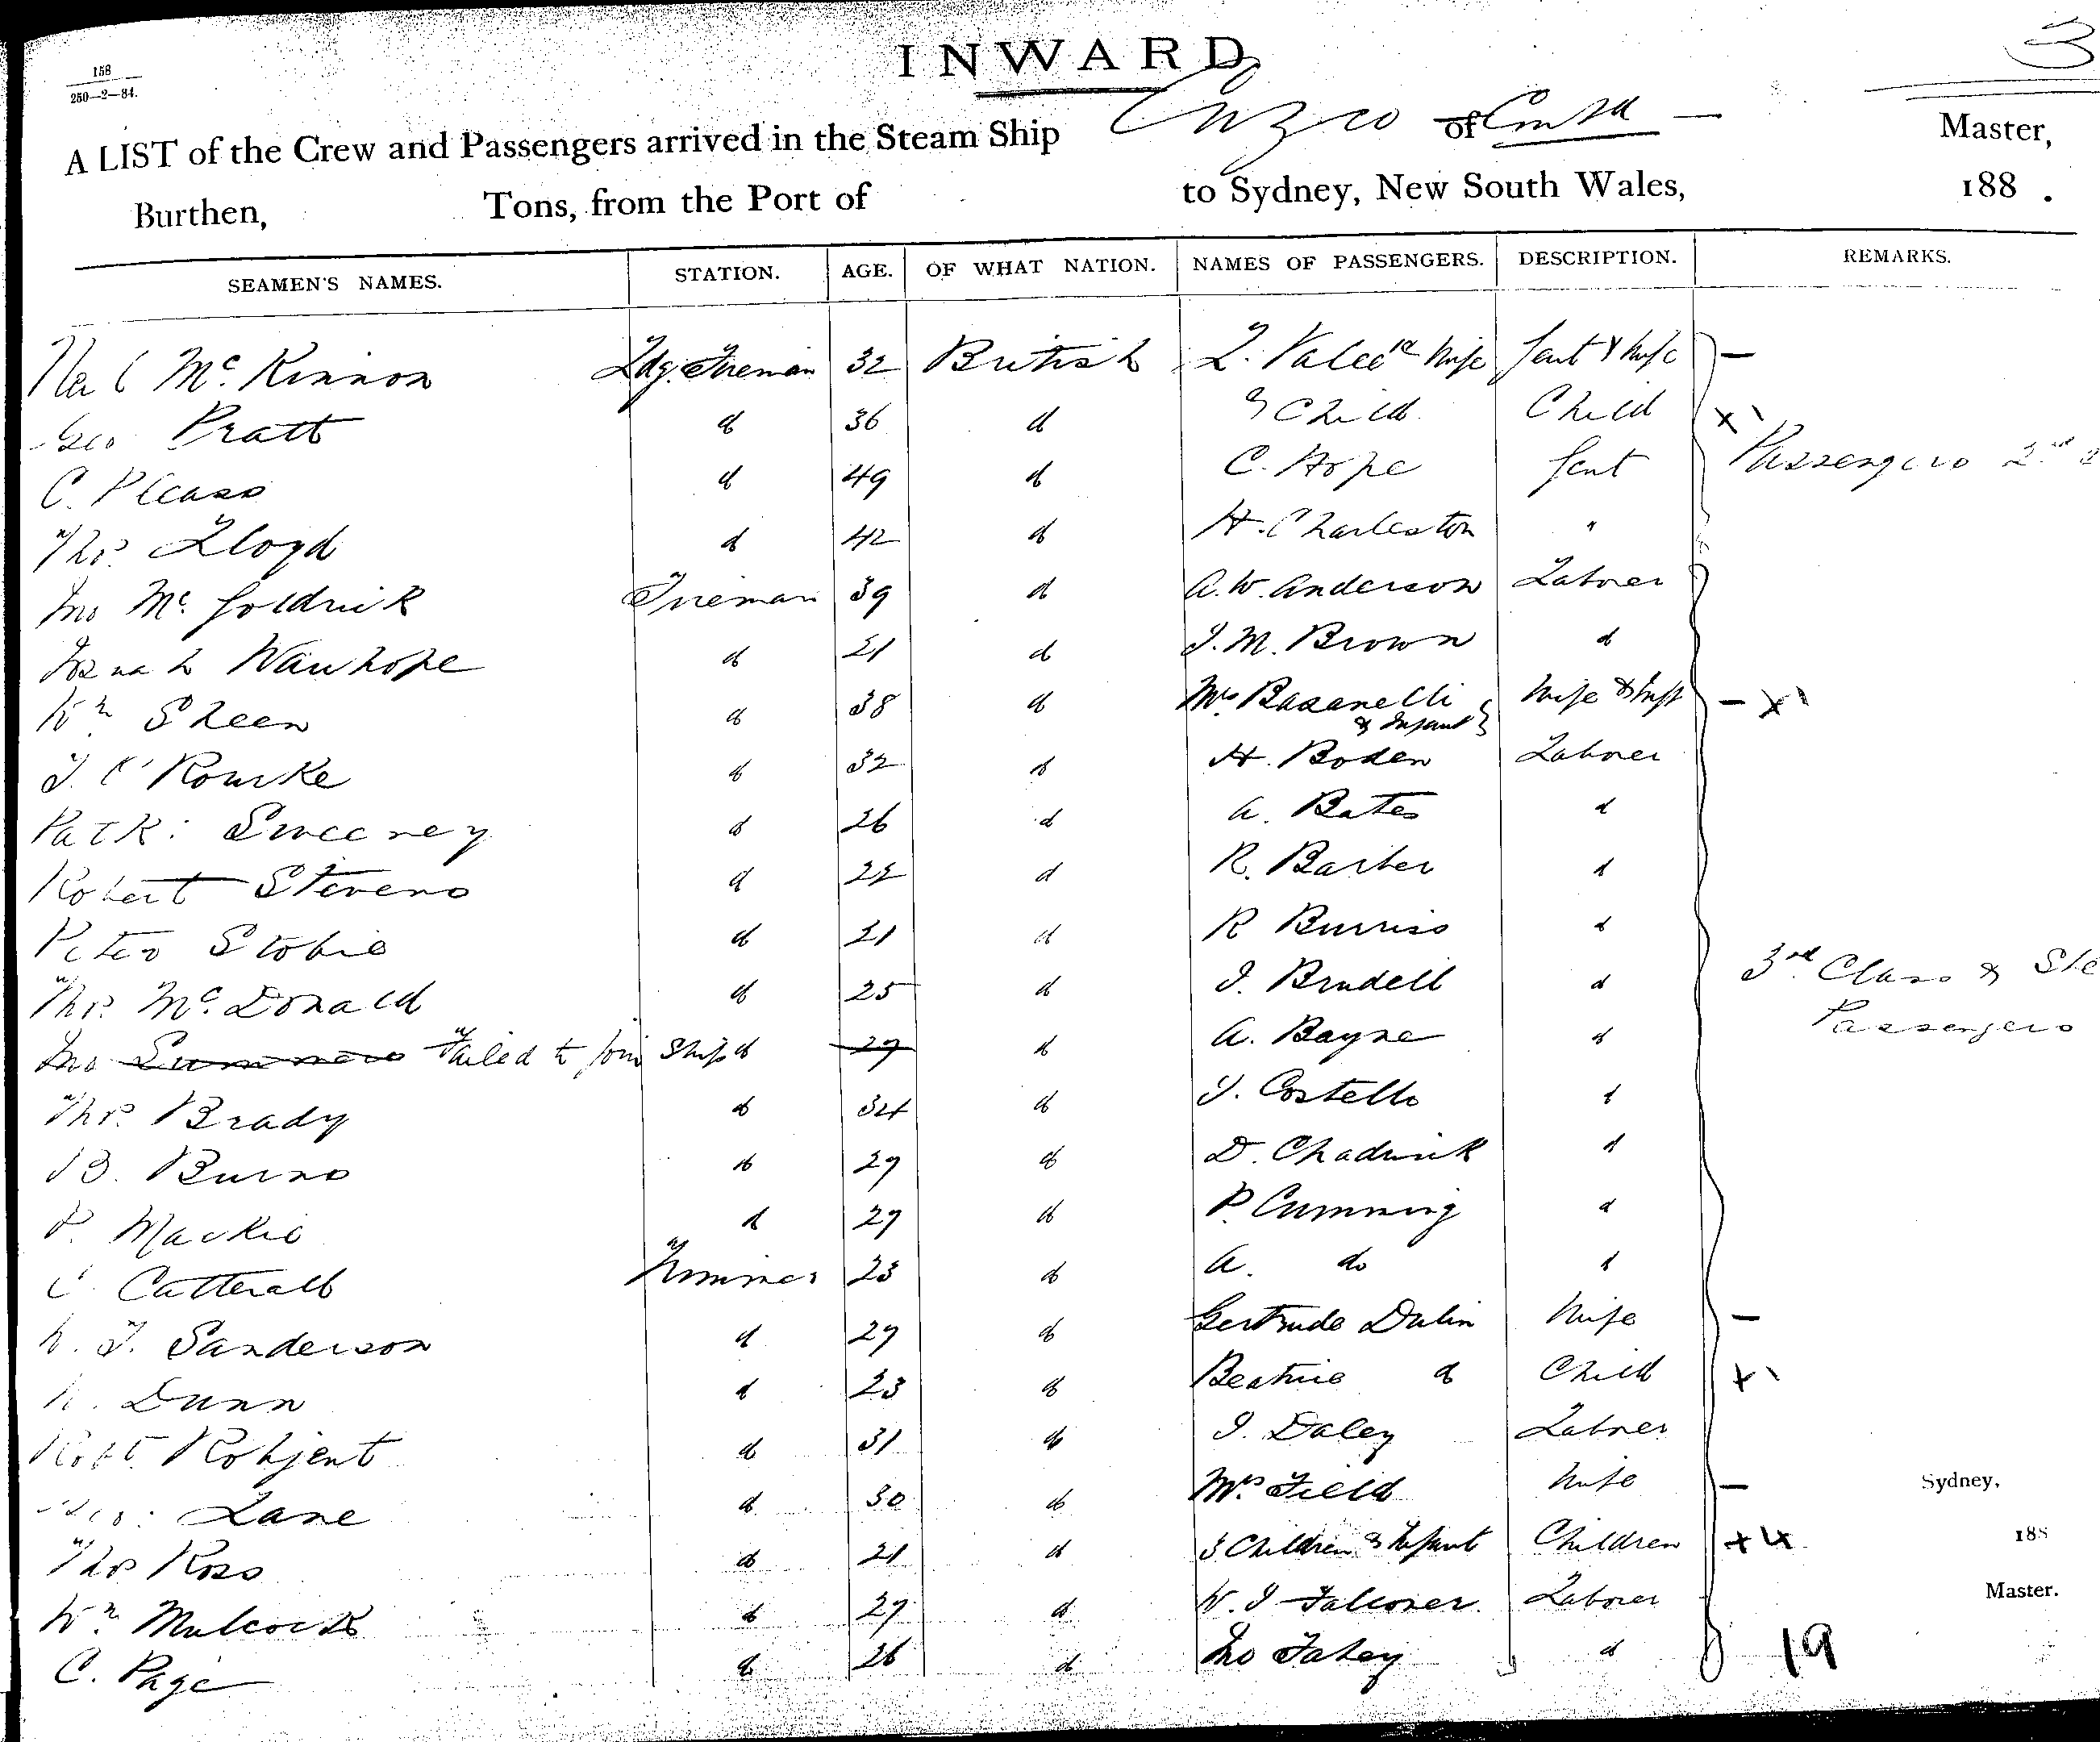 INWARD
3
158
250—2—84.
A LIST of the Crew and Passengers arrived in the Steam Ship Cuzco of Master,
Burthen, Tons, from the Port of to Sydney, New South Wales, 188 .
SEAMEN'S NAMES. STATION. AGE. OF WHAT NATION. NAMES OF PASSENGERS. DESCRIPTION. REMARKS.
McKinnon Ldg. Fireman 32 British Wife Gent & Wife —
Geo Pratt d 36 d & Child Child x 1
Passengers 2nd
C. Please d 49 d C. Hope Gent
Thos. Lloyd d 42 d H. Charleston "
Jno McGoldrick Fireman 39 d A. W. Anderson Laborer
Wauhope d 21 d J. M. Brown d
Wm Sheen d 38 d Mrs Basanelli & Infant Wife & Inft — x 1
J. O'Rourke d 32 d H. Boden Laborer
Patk: Sweeney d 26 d A. Bates d
Robert Stevens d 22 d R. Barber d
Peter Stobie d 21 d R Burriss d
Thos. McDonald d 25 d J. Brudell d 3rd Class & Ste
Passengers
Jno Failed to join Ship d 27 d A. Bayne d
Thos. Brady d 34 d J. Costello d
B. Burns d 27 d D. Chadwick d
P. Mackie d 27 d P. Cumming d
C. Catterall Trimmer 23 d A. do d
W. J. Sanderson d 27 d Gertrude Dalin Wife —
W. Dunn d 23 d Beatrice d Child x 1
Robt. Robjent d 31 d J. Daley Laborer
Geo: Lane d 30 d Mrs. Field Wife — Sydney,
Thos Ross d 21 d 3 Children & Infant Children x 4 188
Wm Mulcock d 27 d W. J Falconer Laborer Master.
C. Page d 26 d Jno Fahey d 19